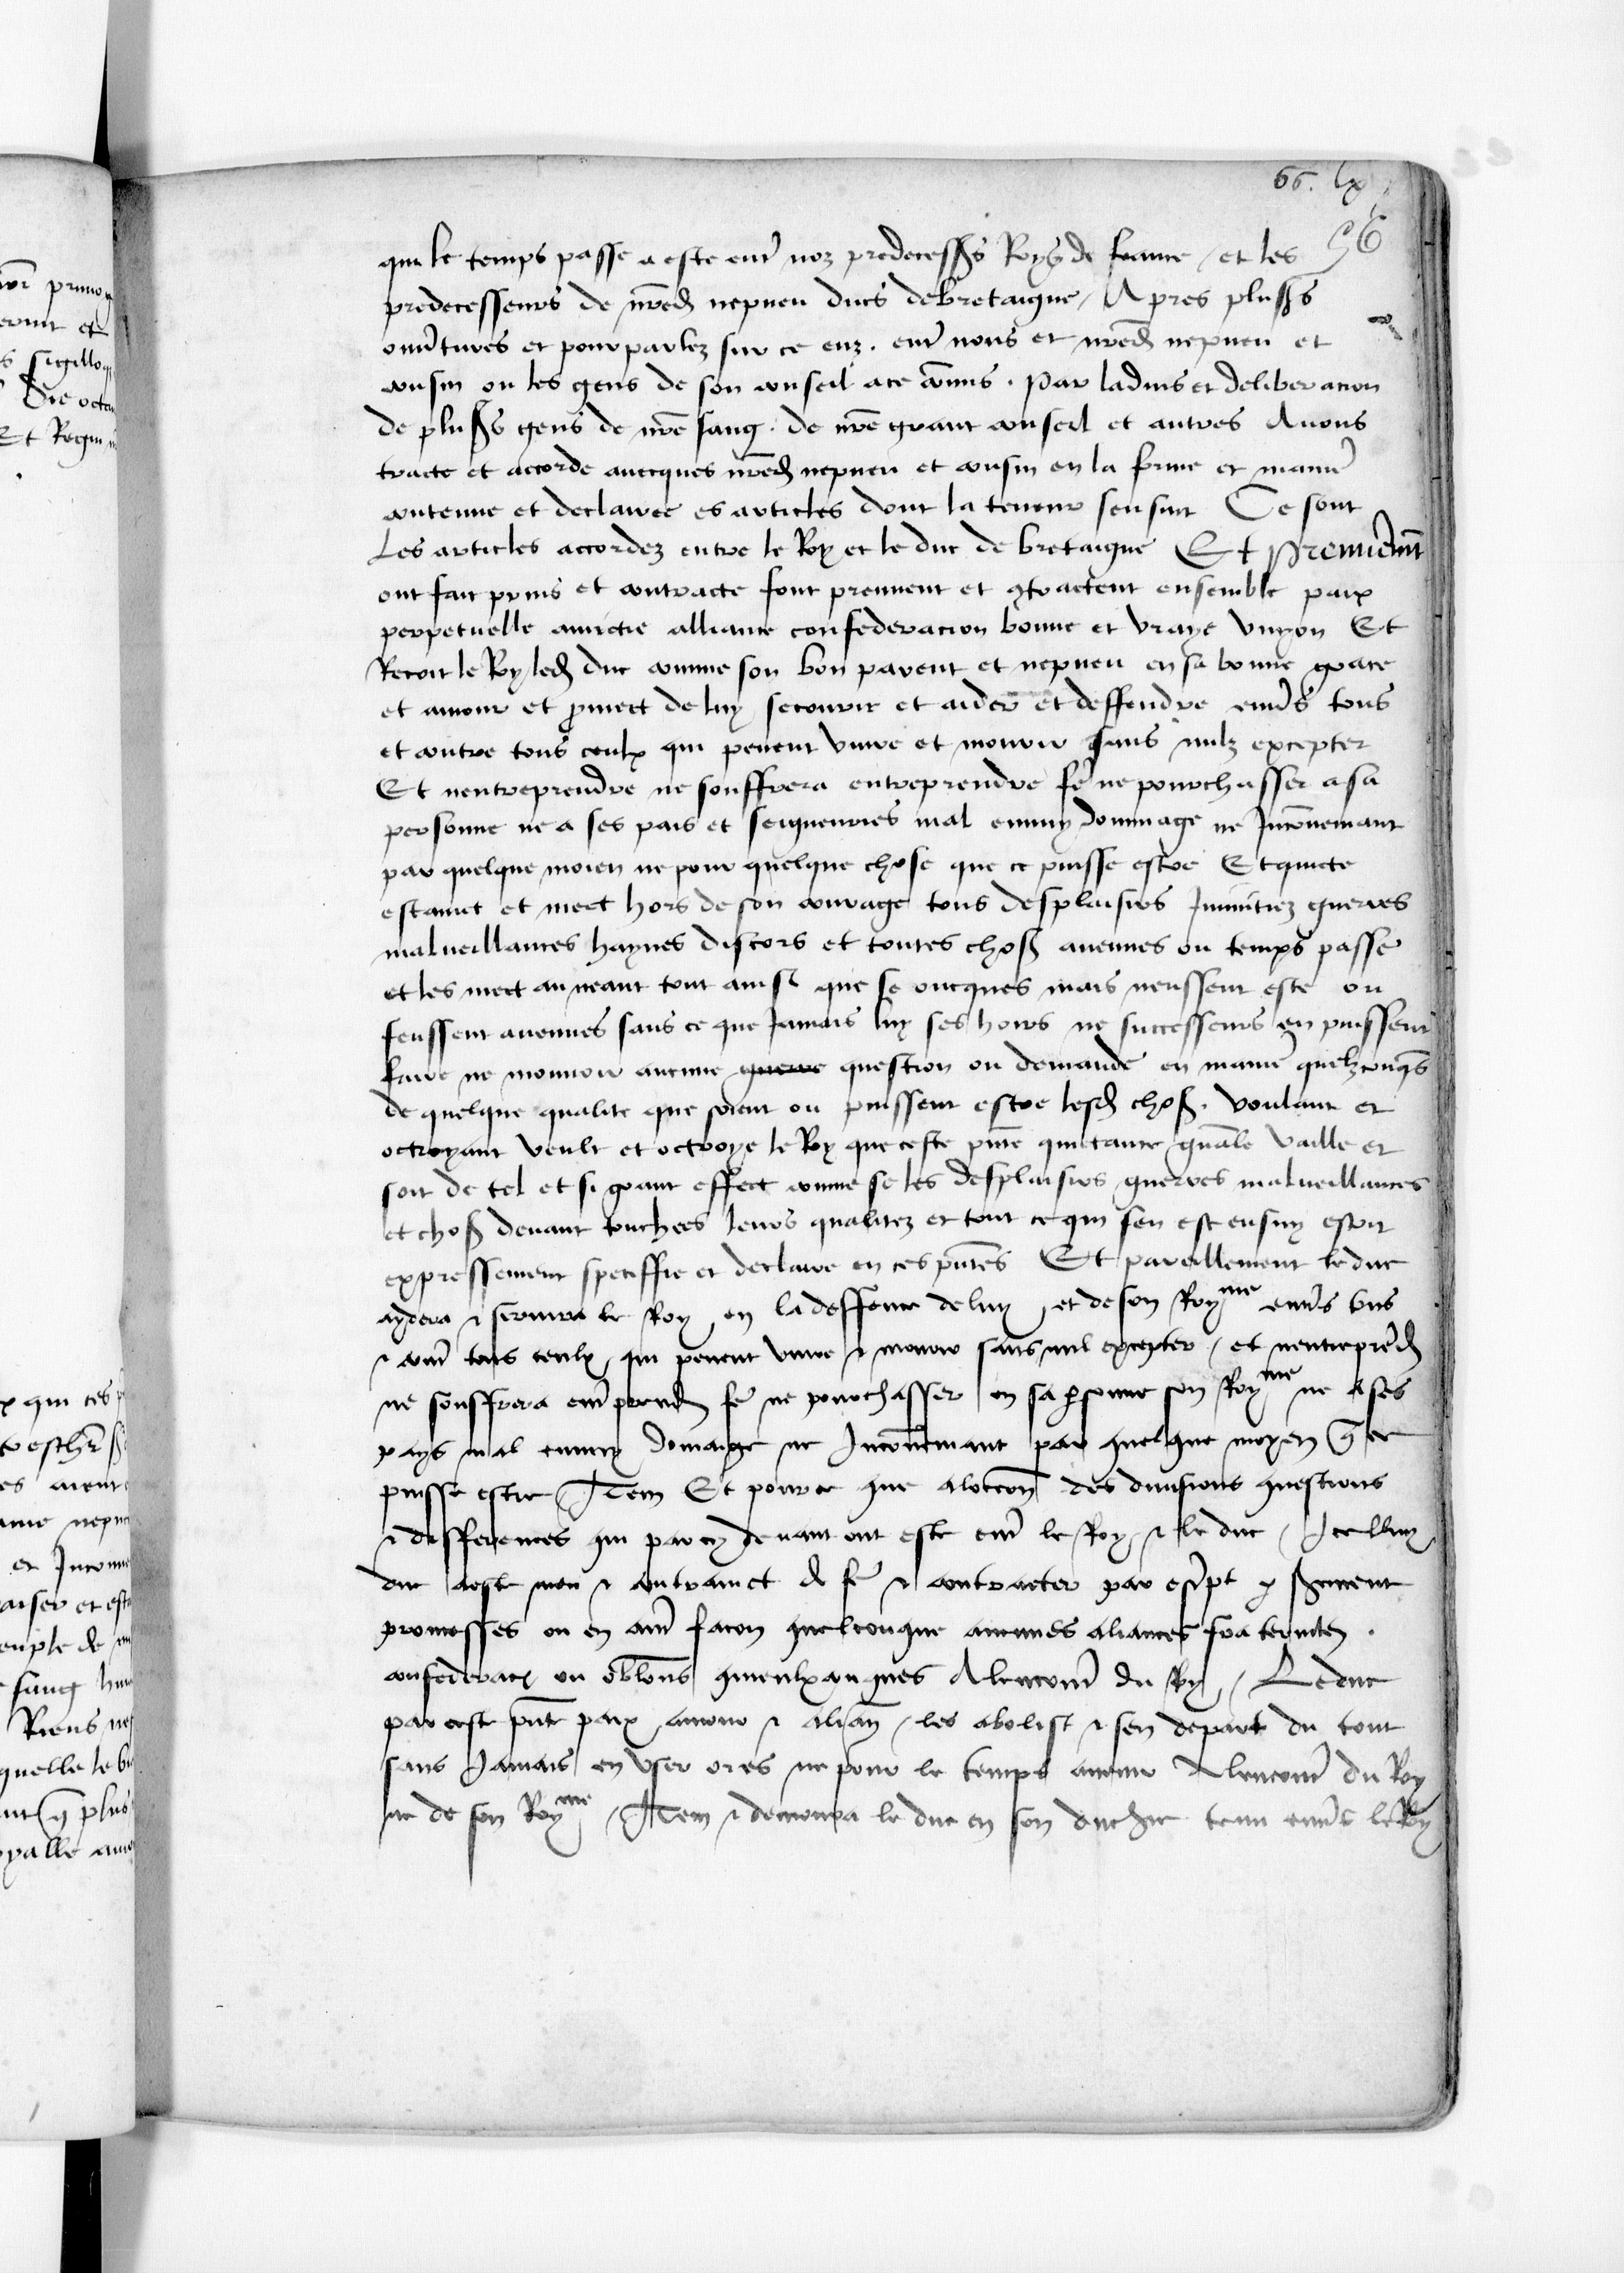 66. lx
56
que le temps passe a este entr noz predecess's Roys de france / et les
predecesseurs de nred nepueu ducs de bretaigne / Apres plus's
ouvtures et pourparlez sur ce euz . entr nous et nred nepueu et
cousin ou les gens de son conseil a ce comis . Par ladvis et deliberacion
de plus's gens de nre sang . de nre grant conseil et autres Avons
tracte et accorde avecques nred nepueu et cousin en la forme et manier
contenue et declairee es articles dont la teneur sensuit Ce sont
Les articles accordez entre le Roy et le duc de bretaigne Et Premieremt
ont fait prins et contracte font prennent et contractent ensemble paix
perpetuelle amictie alliance confederacion bonne et vraye vnyon Et
Recoit le Roy led duc comme son bon parent et nepueu en sa bonne grace
et amour et pmect de luy secourir et aider et deffendre envs tous
et contre tous ceulx qui peuent vivre et mourir sans nulz excepter
Et nentreprendre ne souffrera entreprendre fe ne pourchasser a sa
personne ne a ses pais et seigneuries mal ennuy dommage ne Inconvenient
par quelque moien ne pour quelque chose que ce puisse estre Et quicte
estainct et mect hors de son courage tous desplaisirs Inimitiez guerres
malveillances haynes discors et toutes choses avenues ou temps passe
et les mect au neant tout ainsi que se oncques mais neussent este ou
feussent avenues sans ce que Jamais luy ses hoirs ne successeurs en puissent
faire ne mouvoir aucune guerre question ou demande en manie quelzconqs
de quelque qualite que soient ou puissent estre lesd choses . voulant et
octroyant veult et octroye le Roy que ceste pnte quictance gnale vaille et
soit de tel et si grant effect comme se les desplaisirs guerres malveillances
et choses devant touchees leurs qualitez et tout ce qui sen est ensuy estoit
expressement speciffie et declaire en ces pntes Et pareillement le duc
aydera & servira le Roy en la deffence de luy et de son Royme envs tous
& contr tous ceulx qui peuent vivre & mourir sans nul excepter / et nentreprend
ne souffrera entrprendr fe ne pourchasser en sa psonne son Royme ne a ses
pays mal ennuy domaige ne Inconvenient par quelque moyen q ce
puisse estre Item Et pource que aloccon des divisions questions
& differences qui par cy devant ont este entr le Roy & le duc / Icelluy
duc a este meu & contrainct de fe & contracter par escript p serment
promesses ou en autr facon quelconque aucunes aliances fraternitez .
confederacs ou oblons quieulxcunques Alencontr du Roy / Le duc
par ceste pnt paix amour & alian / les abolist & sen depart du tout
sans Jamais en user ores ne pour le temps avenir Alencontr du Roy
ne de son Royme / Item & demoura le duc en son duche tenu envs le Roy